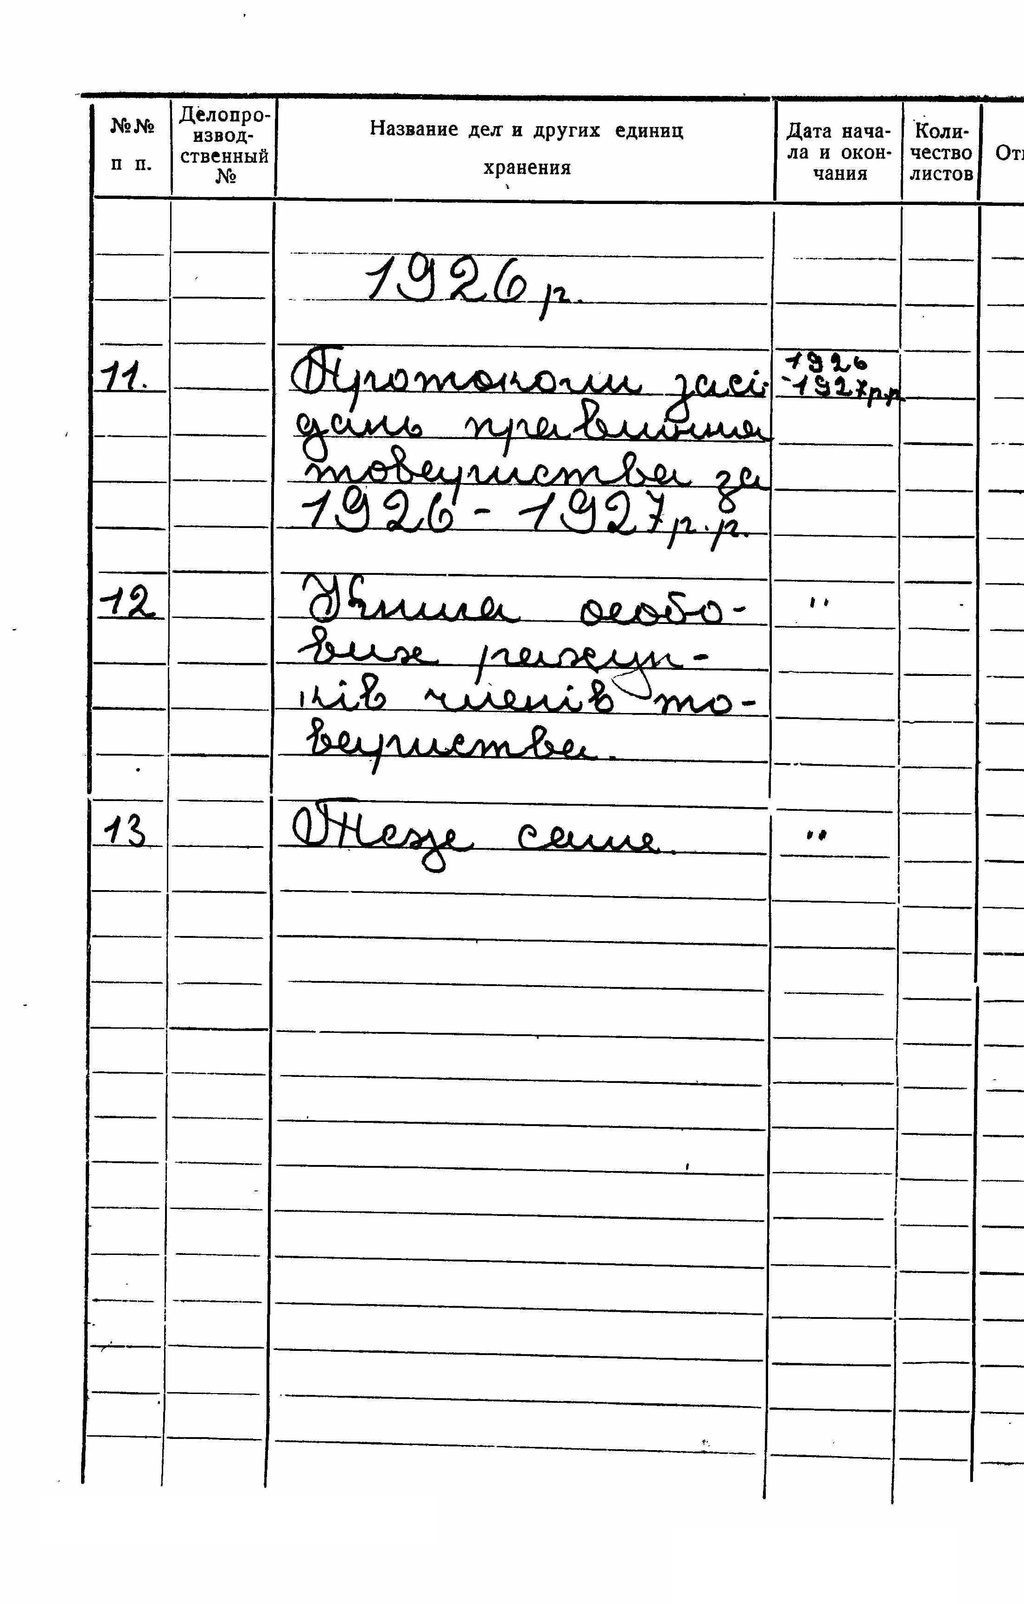 №№ п п.
Делопро-
извод-
ственный
№
Название дел и других единиц
хранения
Дата нача-
ла и окон-
чания
Коли-
чество
листов
От
1926 р.
11.
Протоколи засі-
дань правління
товариства за
1926 - 1927 р.р.
1926
-1927р.р.
12
Книга особо-
вих рахун-
ків членів то-
вариства.
"
13
Теж саме.
"